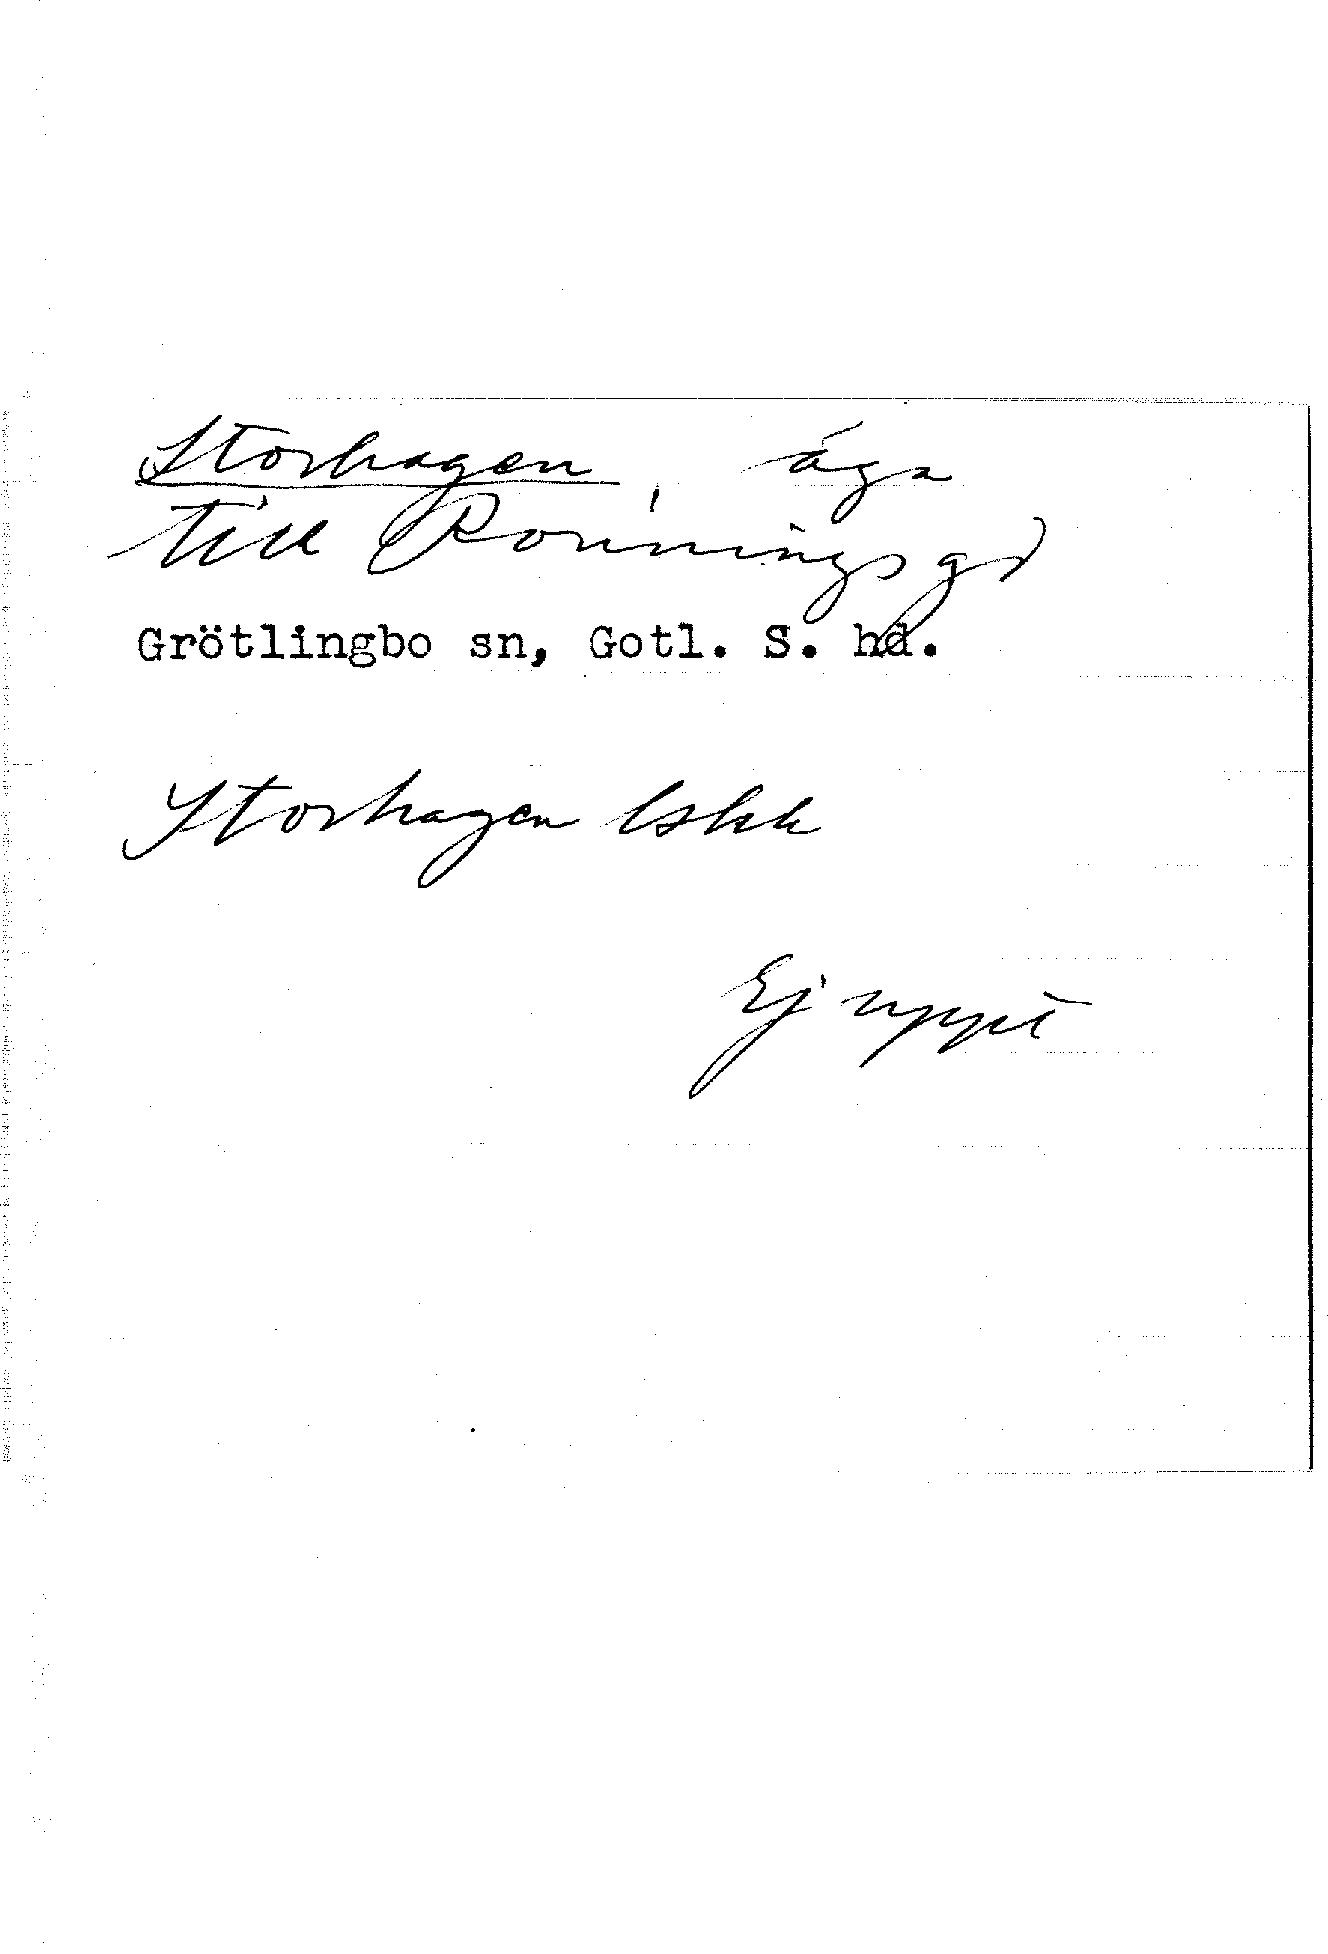 Storhagen äga
till Ronnings gd
Grötlingbo sn, Gotl. S. hd.
Storhagen lskk
Ej uppt